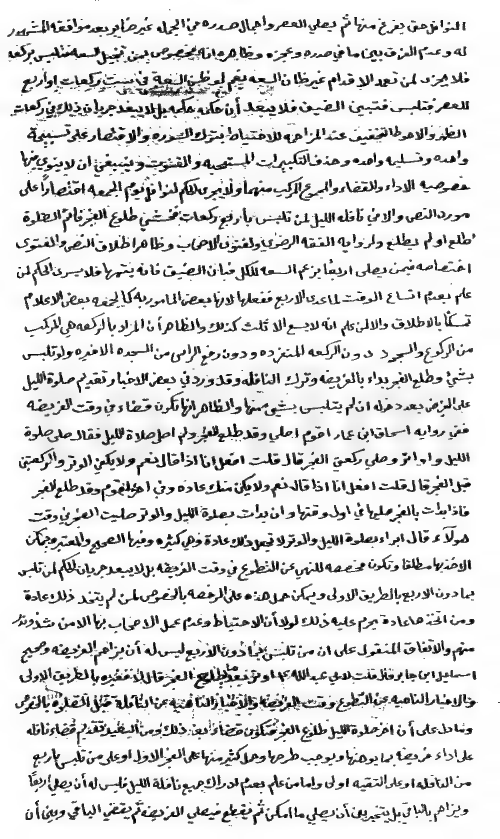 النوافل حتى يفرغ منها ثم يصلي العصر واجمال صدره في الجملة غير ضاير بعد موافقة المشهور
له وعدم الفرق بين ما في صدره وعجزه وظاهره انه مخصوص بمن تخيل السعه فتلبس بركعه
فلا يجزى لمن تعمد الاقدام غير ظان السعه نعم لو ظن السعة في ست ركعات او اربع
للعصر فتلبس فتبين الضيق فلا يبعد أن حكمه حكمه بل لا يبعد جريان ذلك في ركعات
الظهر والاحوط التخفيف عند المزاحمه للاحتياط بترك السوره والاقتصار على تسبيحة
واحده وتسليمة واحده وحذف التكبيرات المستحبه والقنوت وينبغي ان لا ينوي بها
خصوصية الاداء والقضاء والمجموع المركب منهما ولا يجرى الحكم لنوافل يوم الجمعه اقتصارا على
مورد النص والا في نافلة الليل لمن تلبس بأربع ركعات فخشي طلوع الفجر فأتم الصلوة
طلع او لم يطلع ولرواية الفقه الرضوي ولفتوى الاصحاب وظاهر اطلاق النص والفتوى
اختصاصه فيمن يصلي اربعا بزعم السعه للكل فبان الضيق فانه يتمها فلا يسرى الحكم لمن
علم بعدم اتساع الوقت لما عدى الاربع ففعلها لانها بعض المامور به كما يلحقه بعض الاعلام
تمسكا بالاطلاق والا لمن علم انه لا يسع الا ثلث كذلك والظاهر أن المراد بالركعه هي المركب
من الركوع والسجود دون الركعه المنفرده ودون رفع الراس من السجده الاخيره ولو تلبس
بشيء وطلع الفجر بداء بالفريضه وترك النافله وقد ورد في بعض الاخبار تقديم صلوة الليل
على الفرض بعد دخوله ان لم يتلبس بشيء منها والظاهر انها تكون قضاء في وقت الفريضه
ففي رواية اسحاق ابن عمار اقوم اصلي وقد طلع الفجر ولم اصل صلاة الليل فقال صلي صلوة
الليل واوتر وصلي ركعتي الفجر قال قلت افعل انا اذا قال نعم ولا يكون الوتر والركعتين
قبل الفجر قال قلت افعل انا اذا قال نعم ولا يكن منك عادة وفي اخرى اقوم وقد طلع الفجر
فاذا بدأت بالفجر صليها في اول وقتها وان بدات بصلوة الليل والوتر صليت الفجر في وقت
هولآء قال ابدا بصلوة الليل والوتر ولا تجعل ذلك عادة وهي كثيره وفيها الصحيح والمعتبر فيمكن
الاخذ بها مطلقا وتكون مخصصه للنهي عن التطوع في وقت الفريضه بل لا يبعد جريان الحكم لمن تلبس
بما دون الاربع بالطريق الاولى ويمكن حمل هذه على الرخصه بالخصوص لمن لم يتخذ ذلك عادة
ومن اتخذها عادة يحرم عليه ذلك لولا أن الاحتياط وعدم عمل الاصحاب بها الا من شذ ونذر
منهم والاتفاق المنقول على ان من تلبس بما دون الاربع ليس له أن يزاحم الفريضه وصحيح
اسماعيل ابن جابر قال قلت لابي عبد الله اوتر بعد ما يطلع الفجر قال لا فغيره بالطريق الاولى
والاخبار الناهيه عن التطوع وقت الفريضه والاخبار الناهيه عن النافلة قبل الصلوة بالخصوص
وما دل على أن اخر صلوة الليل طلوع الفجر فيكون قضاء بعد ذلك ومن البعيد تقديم قضاء نافله
على اداء فريضة مما يوهنها ويوجب طرحها وحمل كثير منها على الفجر الاول او على من تلبس باربع
من النافله او على التقيه اولى واما من علم بعدم ادراك جميع نافلة الليل فليس له أن يصلي اربعا
ويزاحم بالباقي بل يتخير بين أن يصلي ما امكن ثم يقطع فيصلي الفريضه ثم يقضي الباقي وبين أن